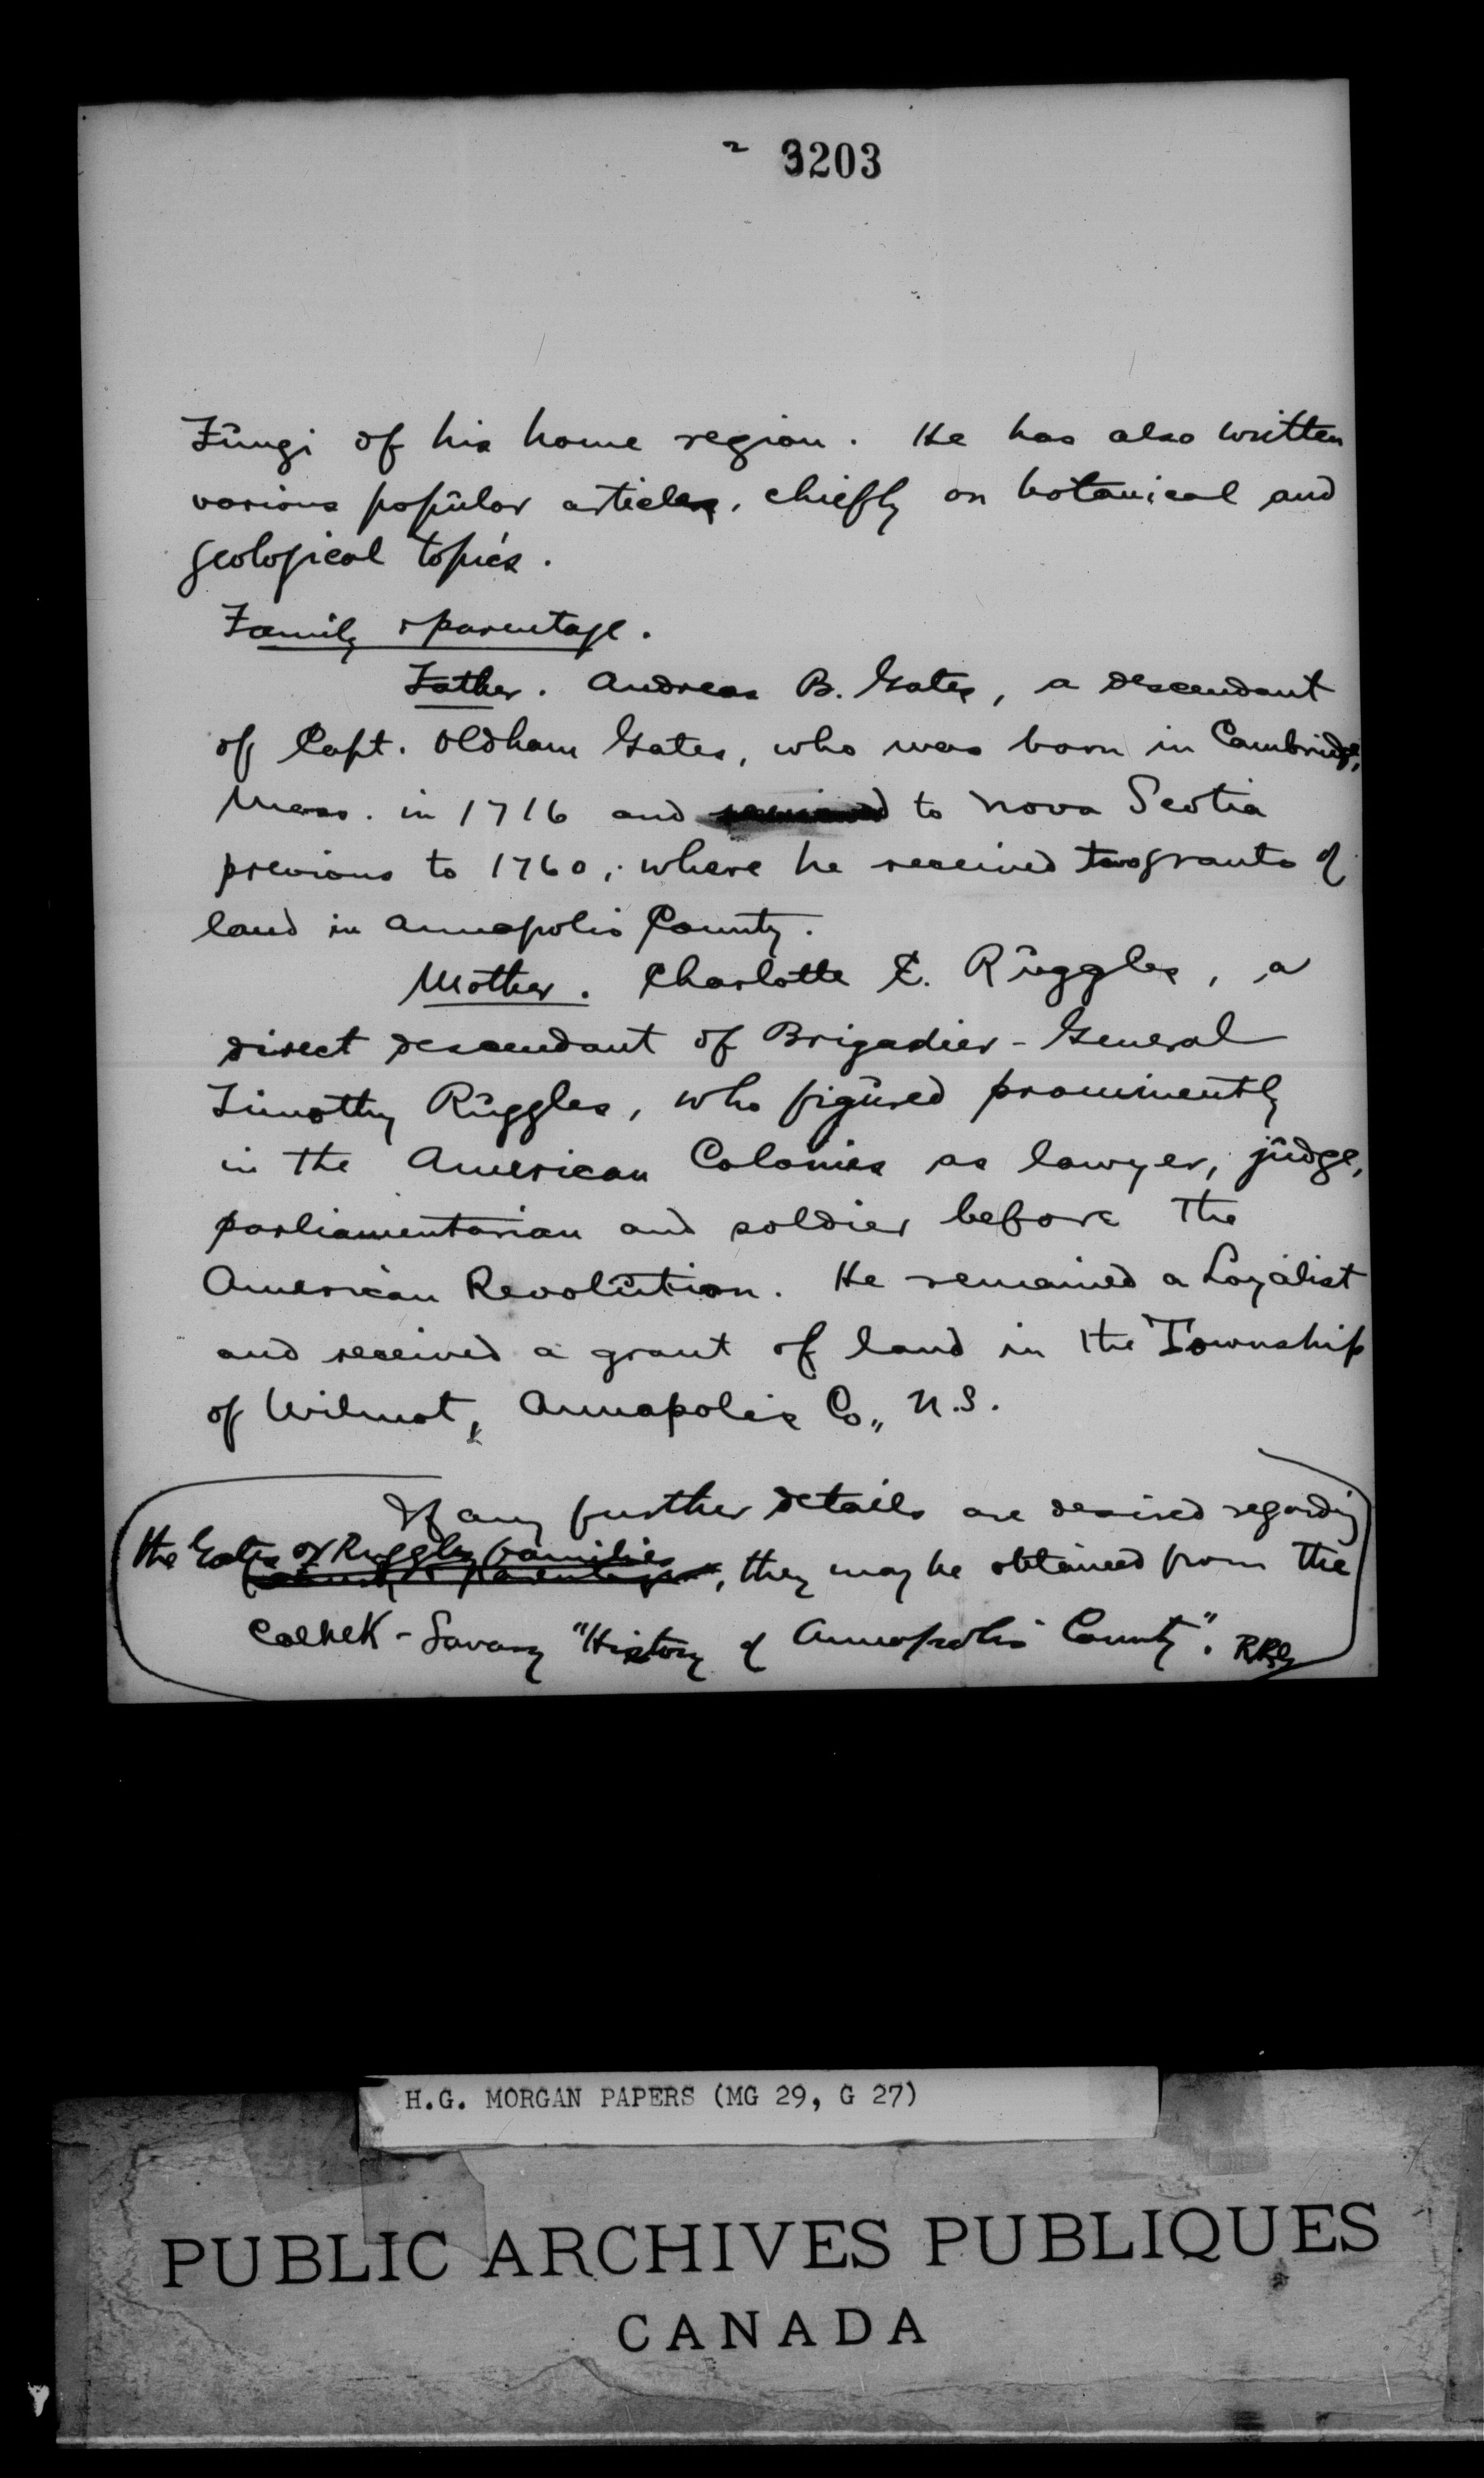 2 3203
Fungi of his home region. He has also written
various popular articles, chiefly on botanical and
geological topics.
Family & parentage.
Father. Andreas B. Gates, a descendant
of Capt. Oldham Gates, who was born in Cambridge,
Mass. in 1716 and removed to Nova Scotia
previous to 1760, where he received two grants of
land in Annapolis County.
Mother. Charlotte E. Ruggles, a
direct descendant of Brigadier-General
Timothy Ruggles, who figured prominently
in the American Colonies as lawyer, judge,
parliamentarian and soldier before the
American Revolution. He remained a Loyalist
and received a grant of land in the Township
of Wilmot, Annapolis Co., N.S.
If any further details are desired regarding
the Gates or Ruggles families
family & parentage, they may be obtained from the
Calnek-Savary "History of Annapolis County". RRG
H.G. MORGAN PAPERS (MG 29, G 27)
PUBLIC ARCHIVES PUBLIQUES
CANADA